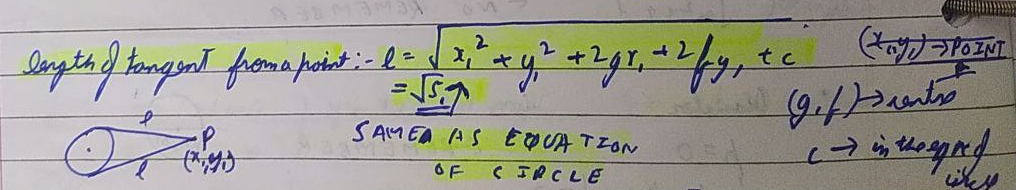 length of tangent from a point :- l = √x₁² + y₁² + 2gx₁ + 2fy₁ + c
(x₁,y₁) → POINT
= √S₁
(g,f) → centre
SAME AS EQUATION
OF CIRCLE
c → in the eqn of
l
P
(x₁,y₁)
l